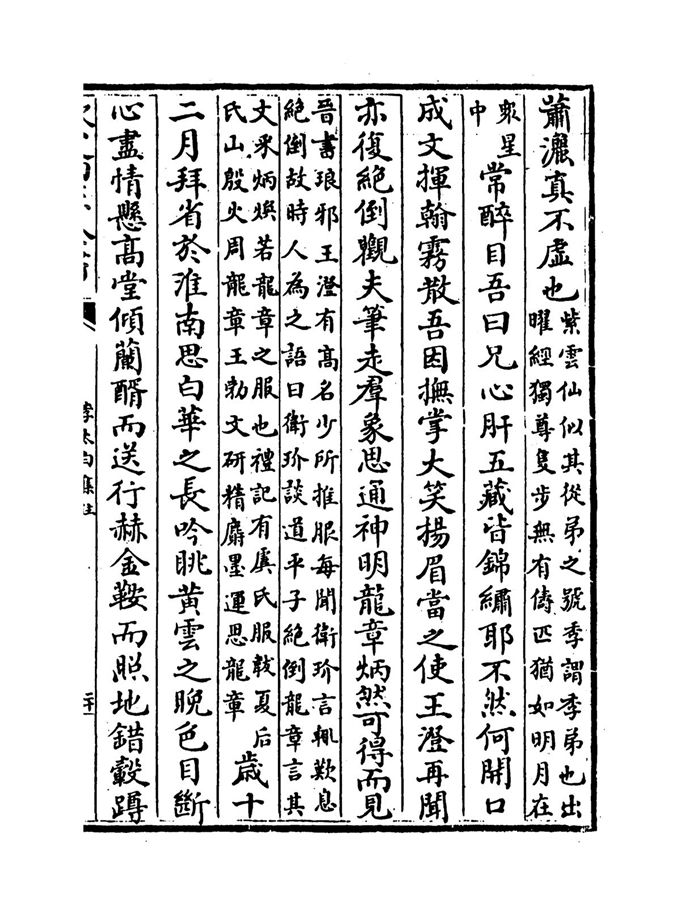 蕭灑真不虛也紫雲仙似其從弟之號季謂季弟也出
曜經獨尊隻步無有儔匹猶如明月在
衆星
中
常醉目吾曰兄心肝五藏皆錦繡耶不然何開口
成文揮翰霧散吾因撫掌大笑揚眉當之使王澄再聞
亦復絕倒觀夫筆走羣象思通神明龍章炳然可得而見
晉書琅邪王澄有高名少所推服每聞衛玠言輒歎息
絕倒故時人為之語曰衛玠談道平子絕倒龍章言其
文采炳煥若龍章之服也禮記有虞氏服韍夏后
氏山殷火周龍章王勃文研精麝墨運思龍章
歲十
二月拜省於淮南思白華之長吟眺黃雲之晚色目斷
心盡情懸高堂傾蘭醑而送行赫金鞍而照地錯轂蹲
李太白集注